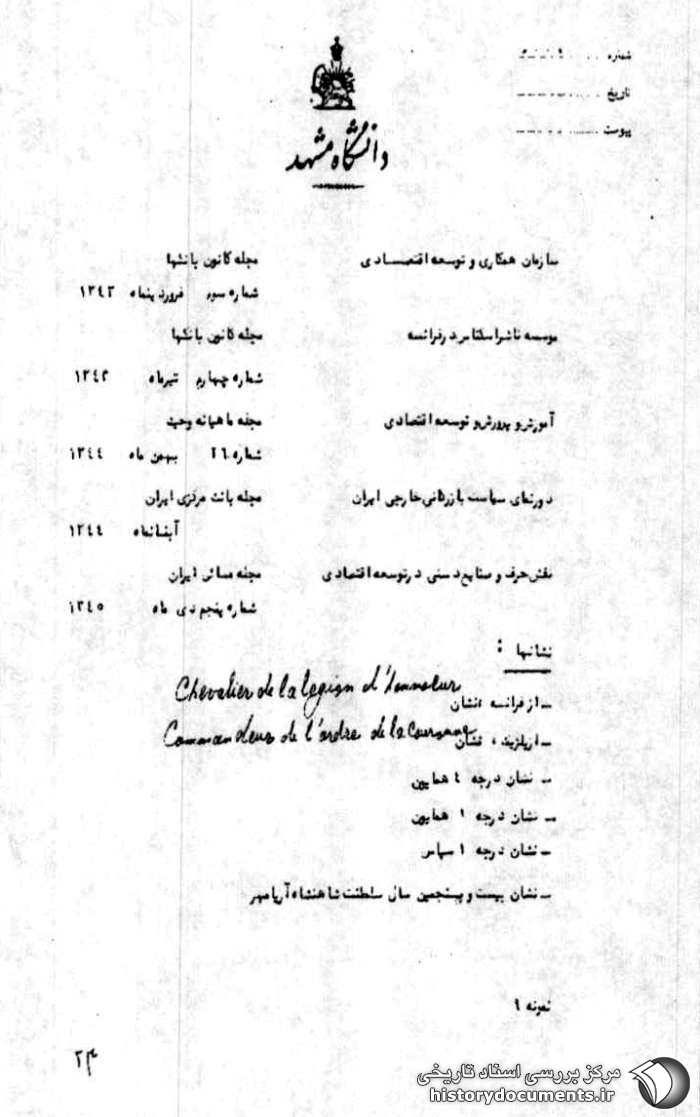 شماره
تاریخ
پیوست
دانشگاه مشهد
سازمان همکاری و توسعه اقتصادی مجله کانون بانکها
شماره سوم فروردینماه ١٣٤٣
موسسه در فرانسه مجله کانون بانکها
شماره چهارم تیرماه ١٣٤٣
آموزش و پرورش و توسعه اقتصادی مجله ماهیانه وحید
شماره ٢٦ بهمن ماه ١٣٤٤
دورنمای سیاست بازرگانی خارجی ایران مجله بانک مرکزی ایران
آبانماه ١٣٤٤
نقش حرف و صنایع دستی در توسعه اقتصادی مجله مسائل ایران
شماره پنجم دی ماه ١٣٤٥
نشانها :
ــ از فرانسه ، نشان Chevalier de la legion d'honneur
ــ از بلژیک ، نشان Commandeur de l'ordre de la Couronne
ــ نشان درجه ٤ همایون
ــ نشان درجه ١ همایون
ــ نشان درجه ١ سپاس
ــ نشان بیست و پنجمین سال سلطنت شاهنشاه آریامهر
نمونه ٩
٢٣
مرکز بررسی اسناد تاریخی
historydocuments.ir